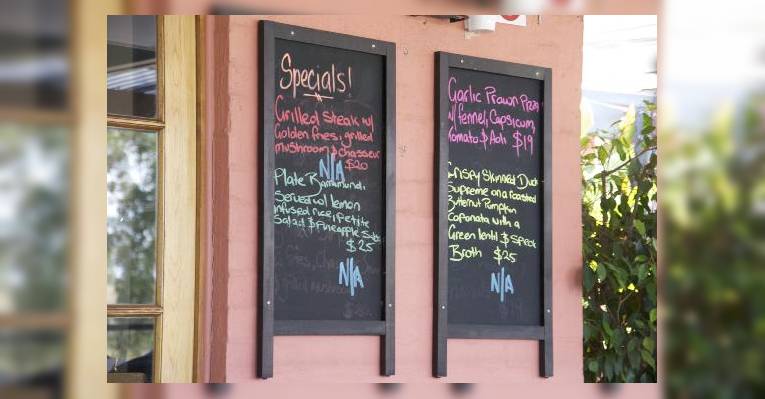 Specials!
Grilled Steak w/
Golden fries, grilled
mushroom & chasseur
$20
N/A
Plate Barramundi,
Served w/ lemon
infused rice, petite
Salad & Pineapple Salsa
$25
N/A
Garlic Prawn Pizza
w/ fennel, Capsicum,
Tomato & Aoli $19
Crispy Skinned Duck
Supreme on a roasted
Butternut Pumpkin
Caponata with a
Green lentil & Speck
Broth $25
N/A